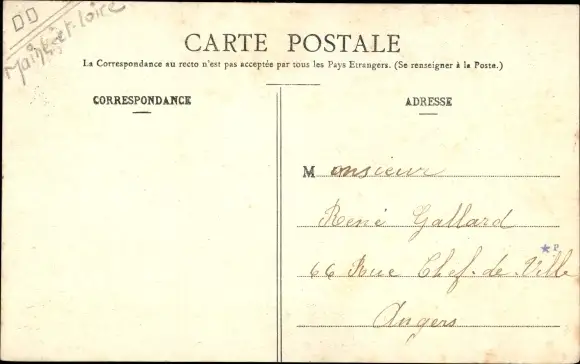 DD
Maine-et-Loire
CARTE POSTALE
La Correspondance au recto n'est pas acceptée par tous les Pays Etrangers. (Se renseigner à la Poste.)
CORRESPONDANCE
ADRESSE
Monsieur
René Gallard
P.
66 Rue Chef-de-Ville
Angers